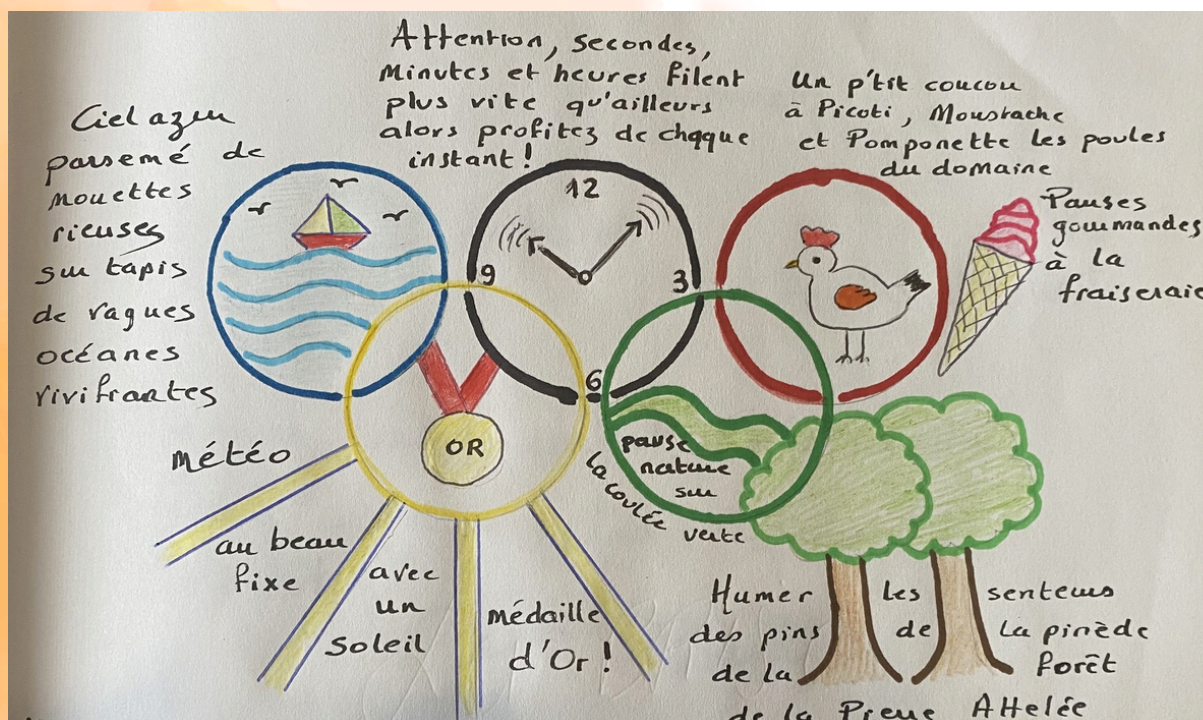 Attention, secondes,
Minutes et heures filent
plus vite qu'ailleurs
alors profitez de chaque
instant !
Un p'tit coucou
à Picoti, Moustache
et Pomponette les poules
du domaine
Ciel azur
parsemé de
mouettes
rieuses
sur tapis
de vagues
océanes
vivifiantes
Pauses
gourmandes
à la
fraiseraie
12
9
3
6
OR
pause
nature
sur
la coulée verte
météo
au beau
fixe
avec
un
soleil
médaille
d'Or !
Humer les senteurs
des pins de la pinède
de la forêt
de la Attelée